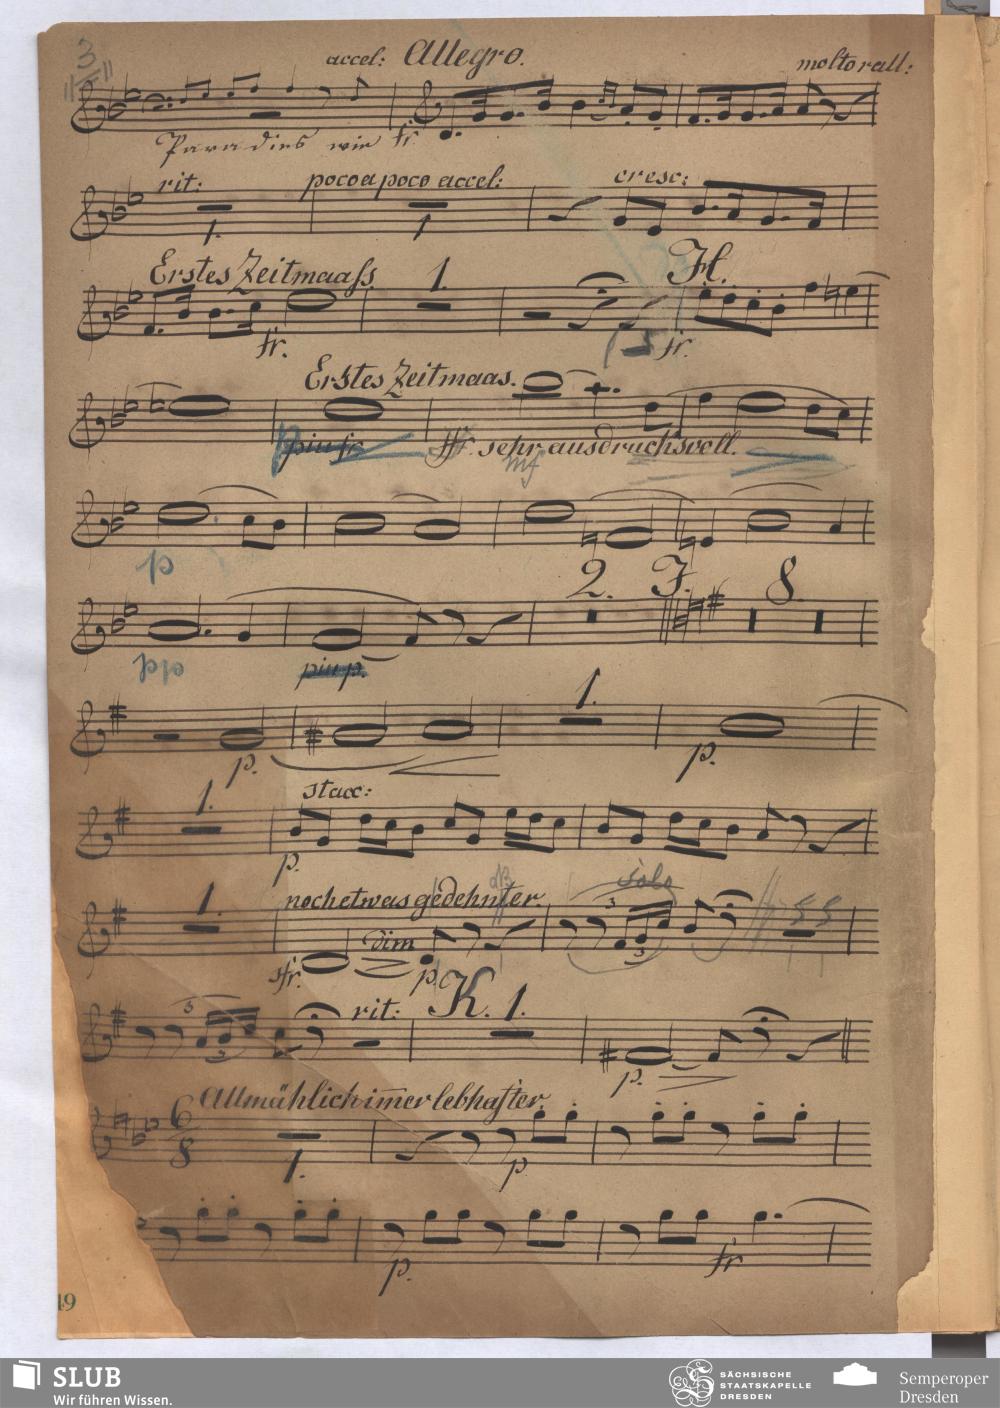 3
accel: Allegro. molto rall:
Paradies wie fr.
rit: poco a poco accel: cresc:
1. 1
Erstes Zeitmaass. 1. H.
fr. fr.
Erstes Zeitmaas.
piu fr. ffr. sehr ausdrucksvoll.
mf
p
2. J. 8.
pp piu p.
1.
p. p.
1. stacc:
p.
solo
1. noch etwas gedehnter. 3
dim
sfr. p. 3
3 rit: K. 1.
3
p.
Allmählich im̄er lebhafter.
6
8 1. p
p. fr
19
SLUB
Wir führen Wissen.
SÄCHSISCHE
STAATSKAPELLE
DRESDEN
Semperoper
Dresden